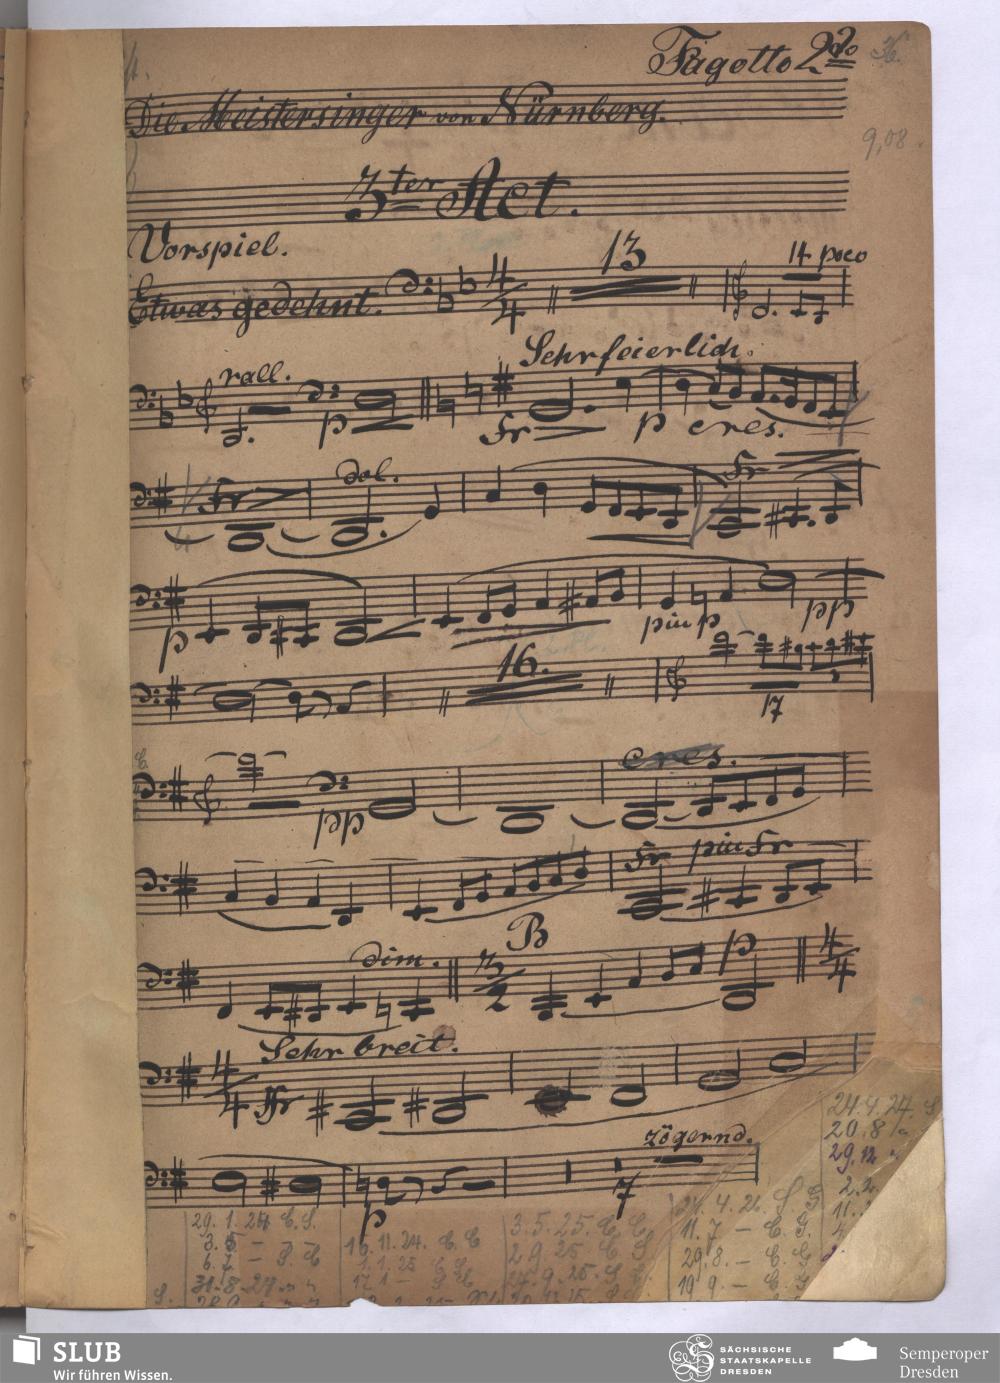 Fagotto 2do
Die Meistersinger von Nürnberg.
9,08.
3ter Act.
Vorspiel.
Etwas gedehnt. 4/4 13 14 poco
rall. Sehr feierlich.
p fr p cres.
fr dol. fr
p piu p pp
16. 17
pp cres.
fr piu fr
dim. B 3/2 p 4/4
Sehr breit.
4/4 ffr
zögernd.
p 7
24.4.24. S
20.8
29.12
29.1.24 C.S. 16.11.24. C.C 3.5.25. C C. 21.4.26. S. G
3.5 - 1.1.25 2.9.25 C S 11.7 - C. G.
6.7 - 17.1 - 27.9.25. S C. 29.8. - C. G
31.8.24 19.9. - C. G
SLUB
Wir führen Wissen.
SÄCHSISCHE
STAATSKAPELLE
DRESDEN
Semperoper
Dresden